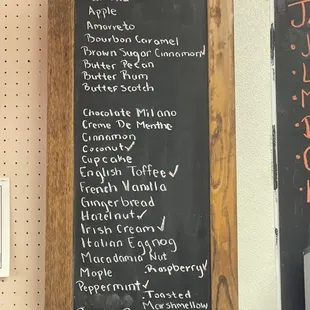 Apple
Amorreto
Bourbon Caramel
Brown Sugar Cinnamon✓
Butter Pecan
Butter Rum
Butter Scotch
Chocolate Milano
Creme De Menthe
Cinnamon
Coconut✓
Cupcake
English Toffee✓
French Vanilla
Gingerbread
Hazelnut✓
Irish Cream✓
Italian Eggnog
Macadamia Nut
Maple .Raspberry✓
Peppermint✓
.Toasted
Marshmellow